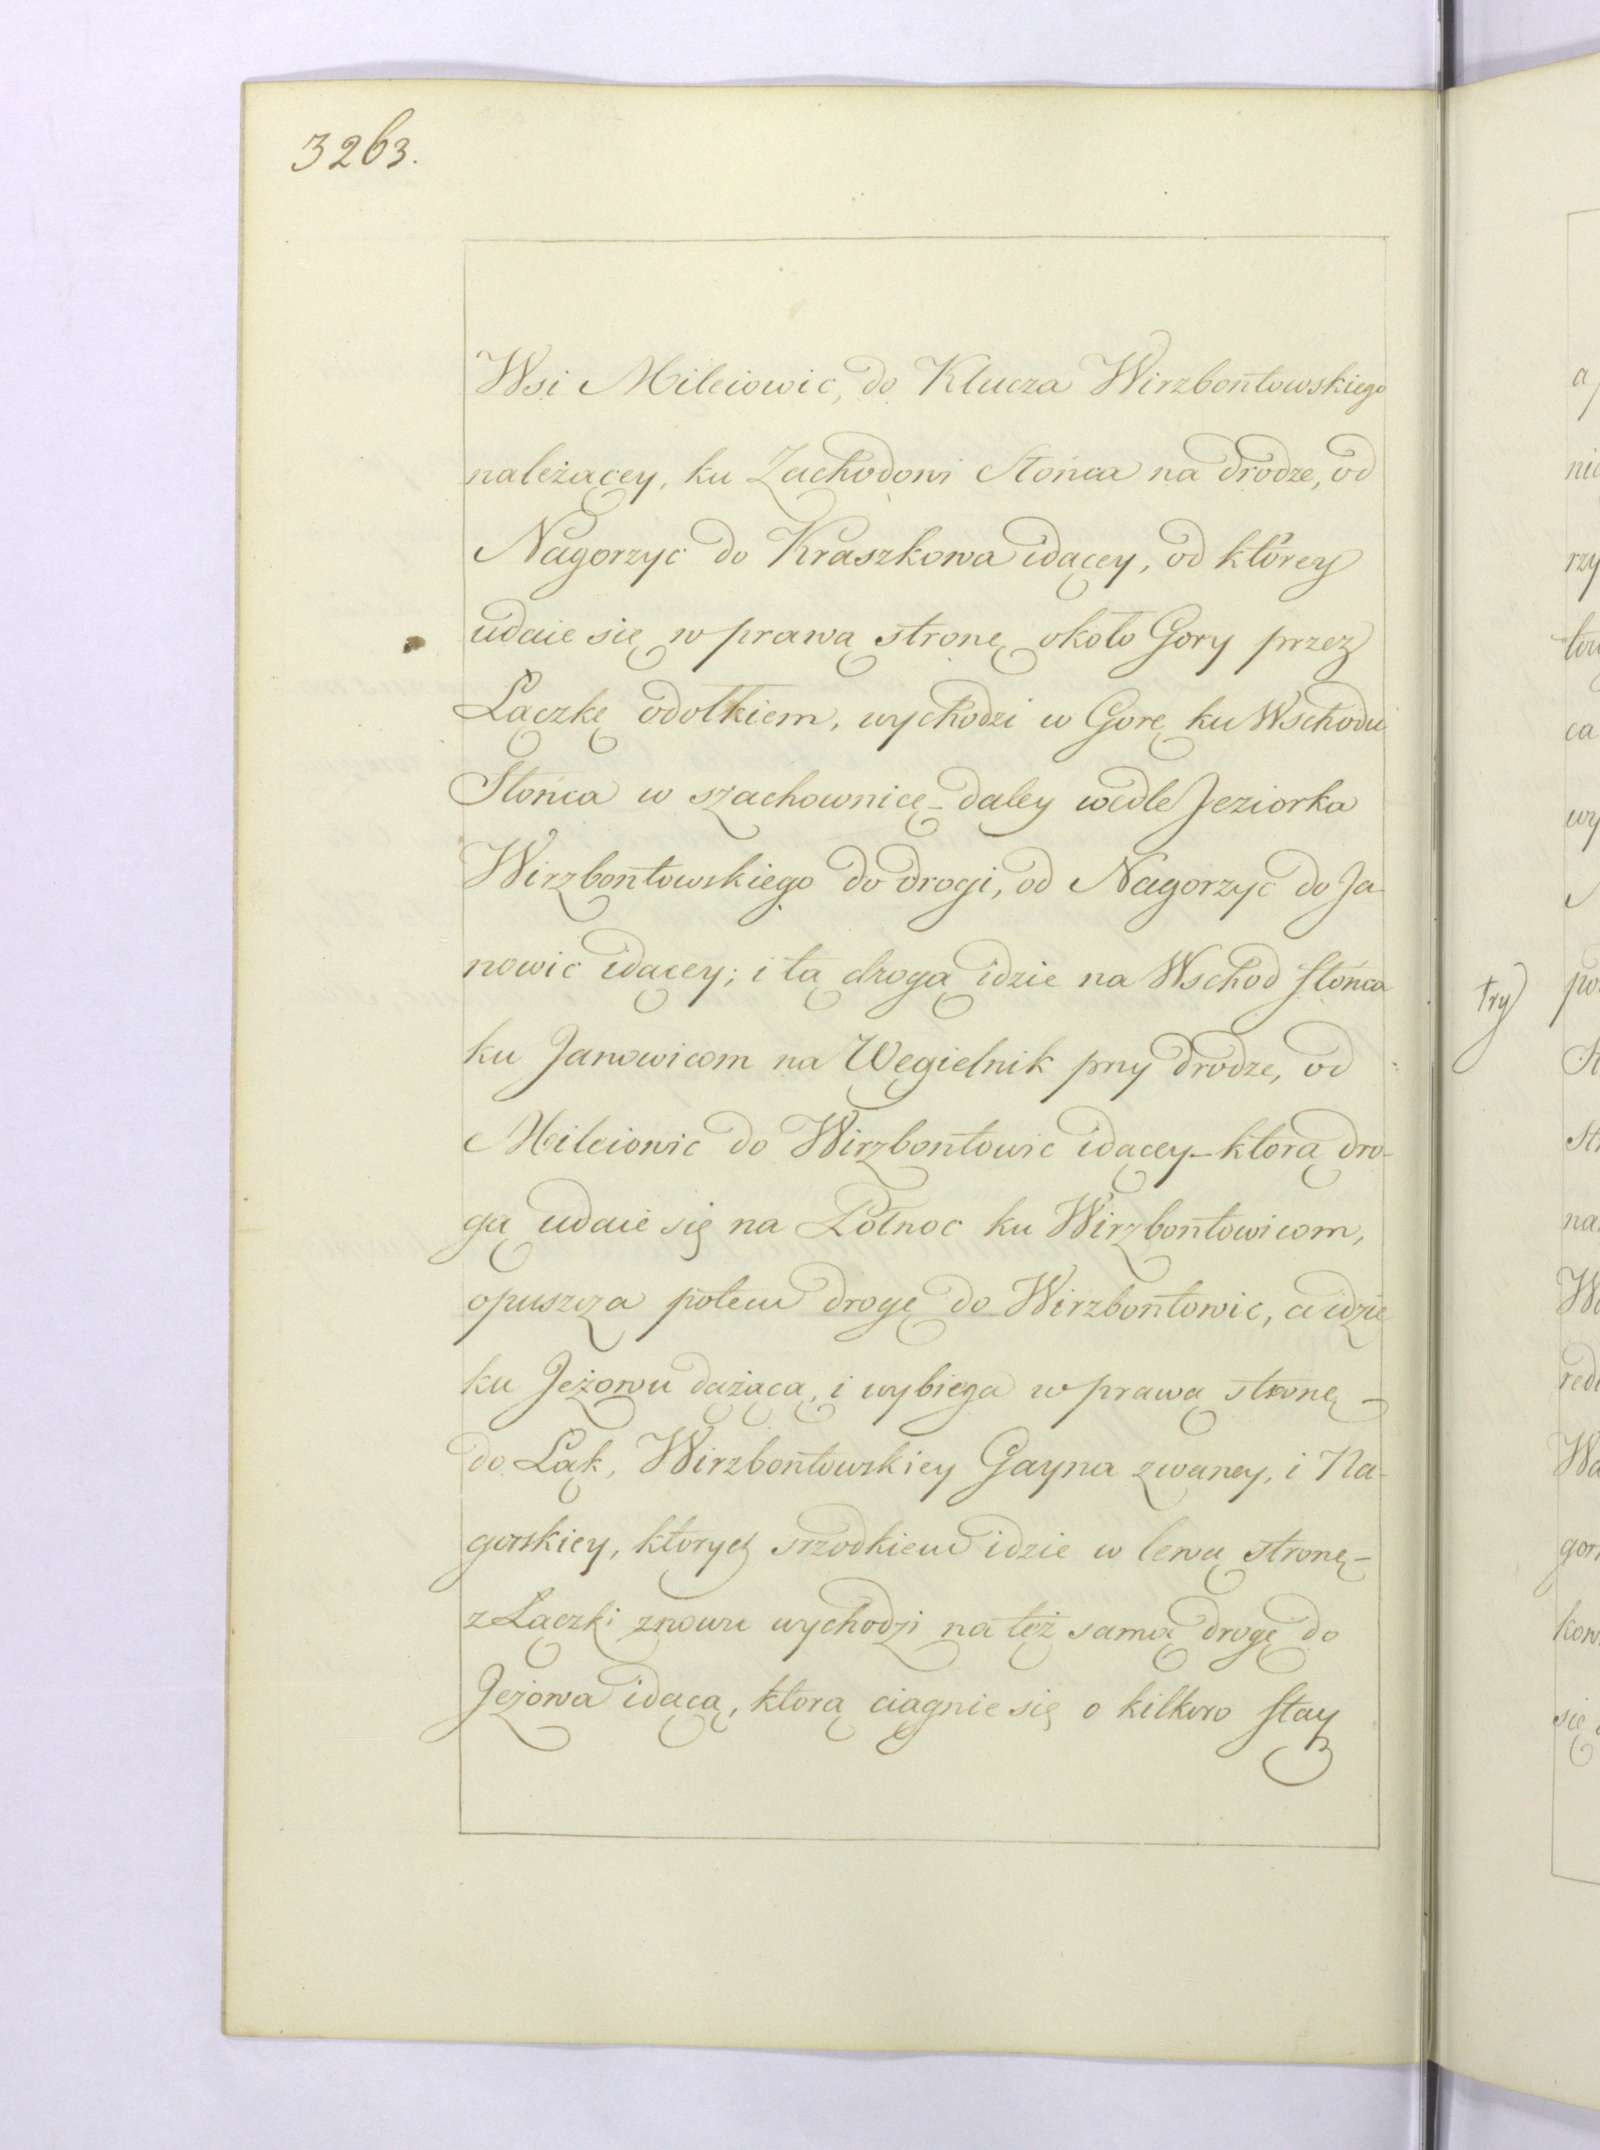 3263.
Wsi Milciowic, do Klucza Wirzbontowskiego
należącey, ku Zachodowi Słońca na drodze, od
Nagorzyc do Kraszkowa idącey, od którey
udaie się w prawą stronę około Gory przez
Łączkę odołkiem, wychodzi w Gorę ku Wschodu
Słońca w szachownicę_ daley wedle Jeziorka
Wirzbontowskiego do drogi, od Nagorzyc do Ja-
nowic idącey; i tą drogą idzie na Wschod słońca
ku Janowicom na Węgielnik przy drodze, od
Milciowic do Wirzbontowic idącey_ ktorą dro-
gą udaie się na Połnoc ku Wirzbontowicom,
opuszcza potem drogę do Wirzbontowic, a idzie
ku Jeżowu dążącą, i wybiega w prawą stronę_
do Łąk, Wirzbontowskiey Gayna zwaney, i Na-
gorskiey, ktorych srzodkiem idzie w lewą stronę_
z Łączki znowu wychodzi na też samą drogę do
Jeżowa idącą, ktorą ciągnie się o kilkoro stay
try